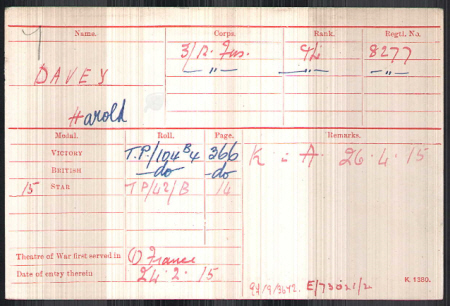 Name. Corps. Rank. Regtl. No.
DAVEY 3/R. Fus. 8277
Harold — " — — " — — " —
Medal. Roll. Page. Remarks.
VICTORY T.P./104 B4 366 K in A. 26.4.15
BRITISH do do
15 STAR T P/42/B 14
Theatre of War first served in (1) France
Date of entry therein 24.2.15
K 1380.
E/73021/2